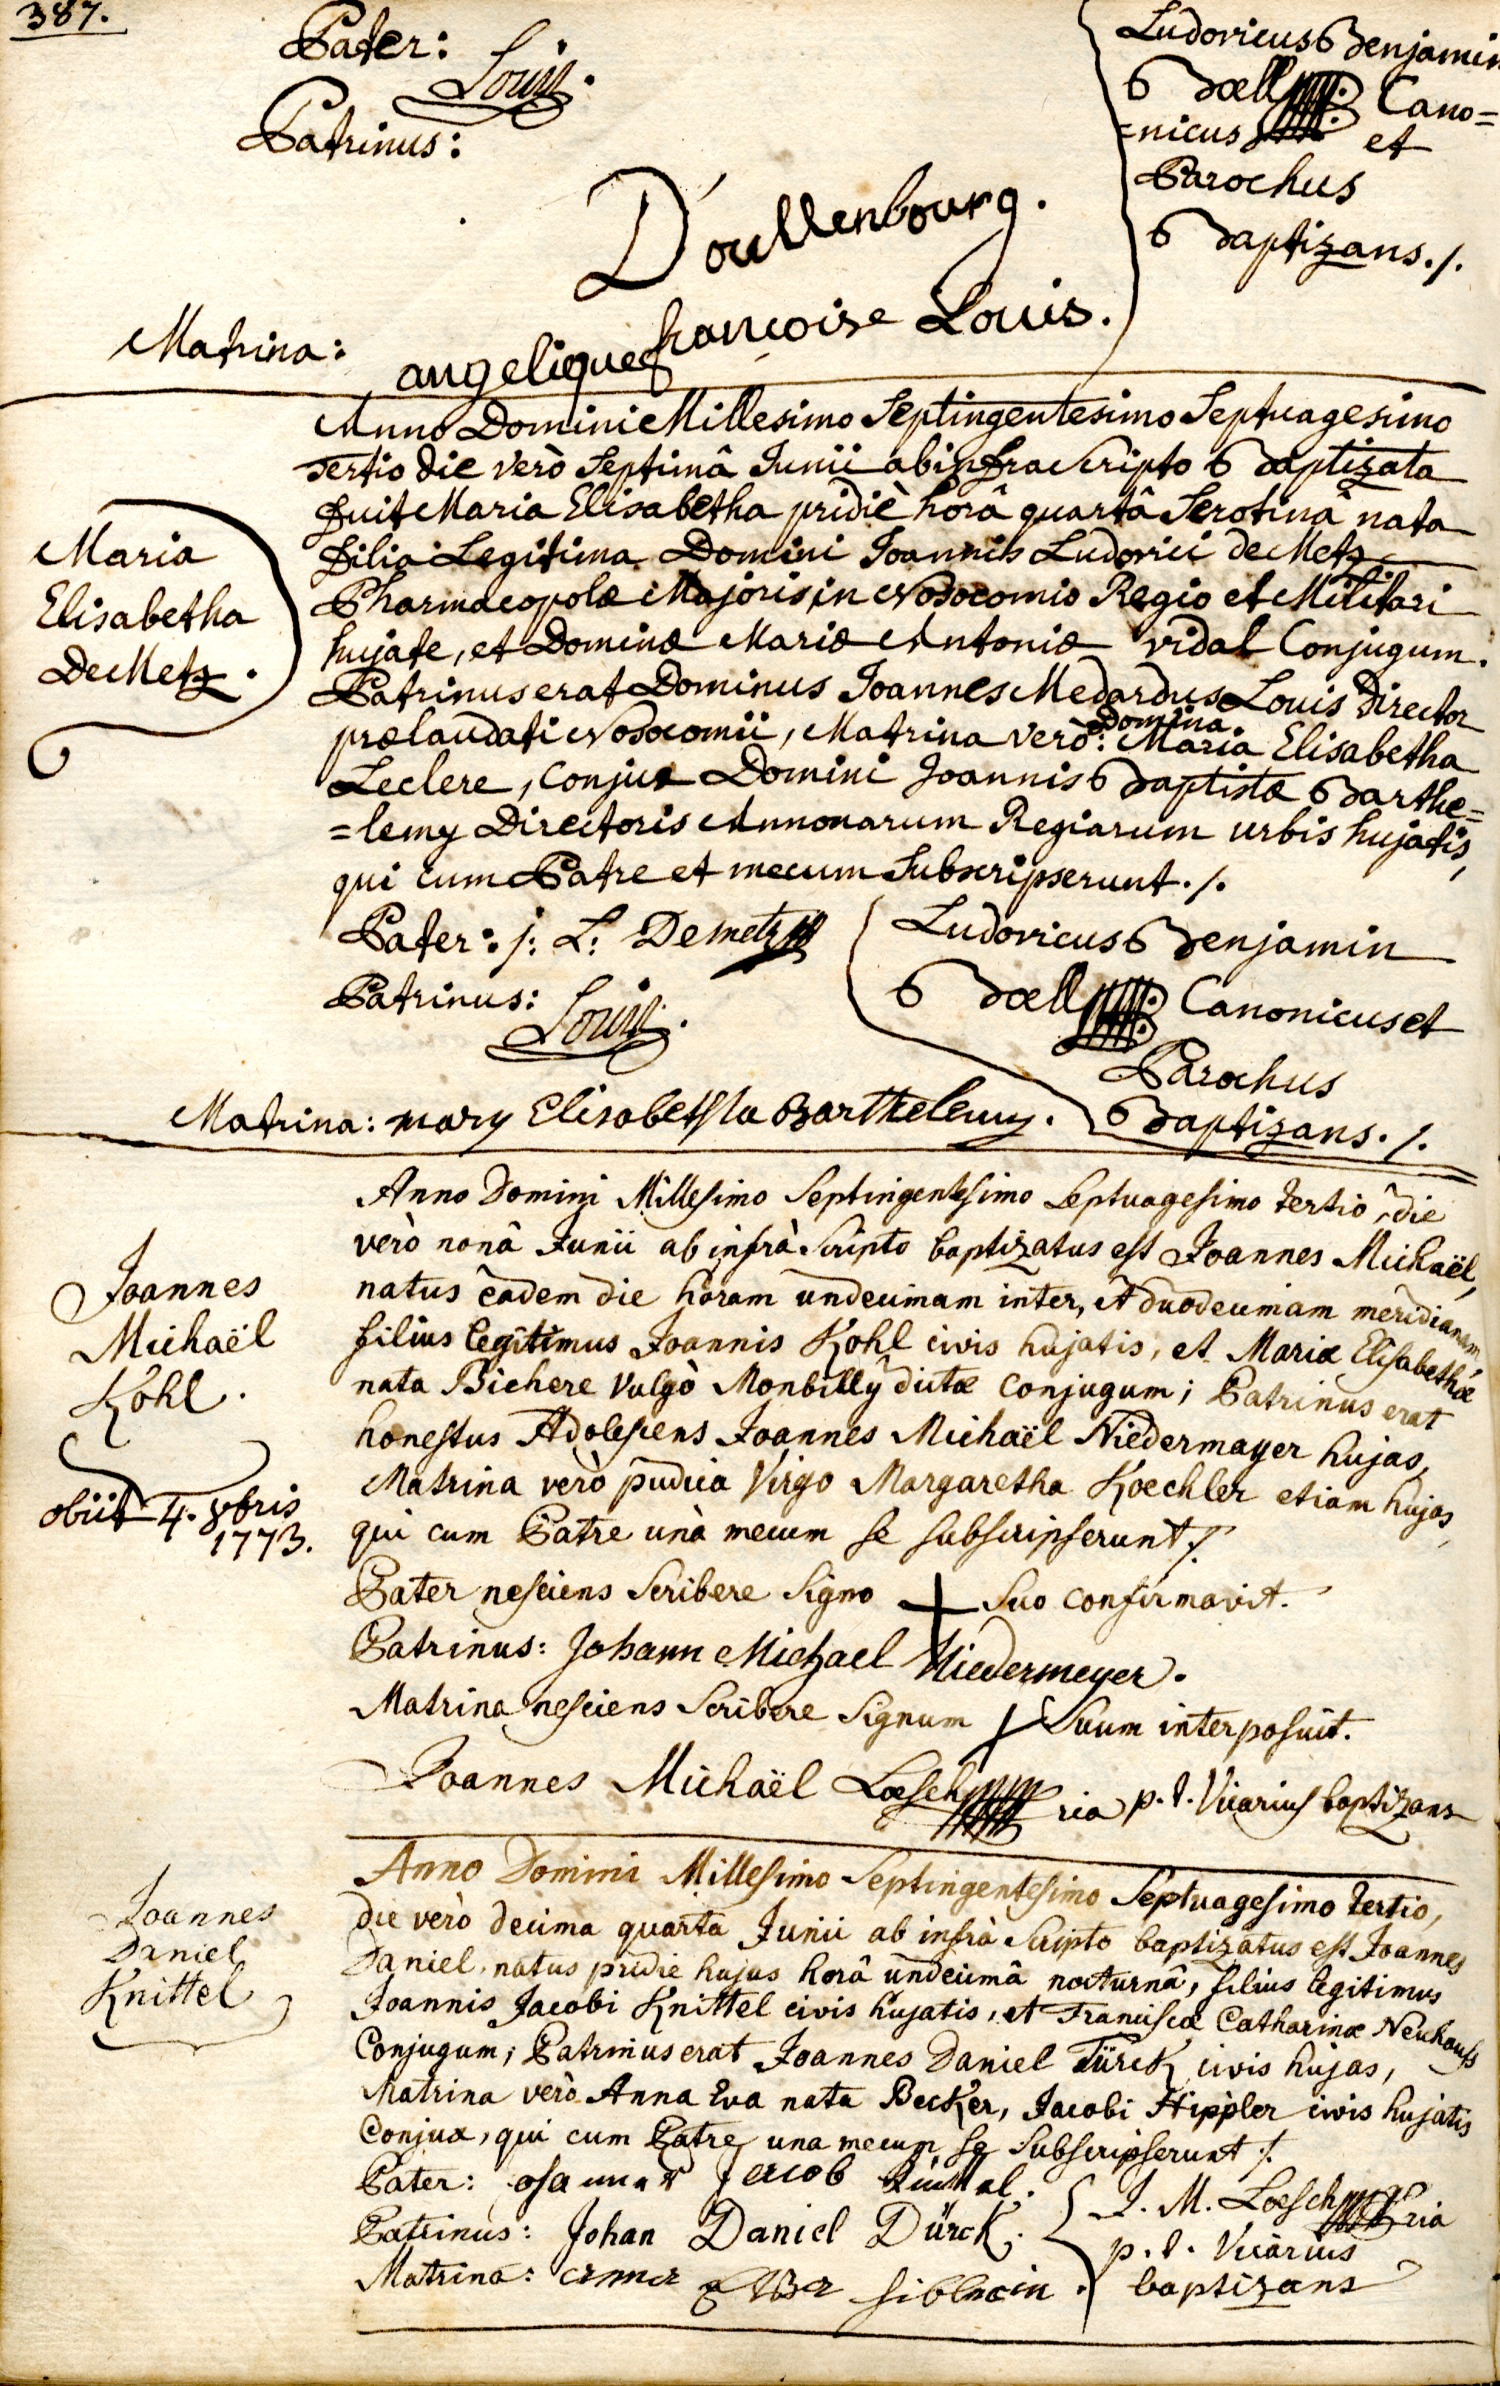 387.
Pater: Louis.
Patrinus:
D'oullenbourg.
Matrina: angelique francoise Louis.
Ludovicus Benjamin
Boell Cano=
=nicus et
Parochus
Baptizans ./.
Maria
Elisabetha
De Metz.
Anno Domini Millesimo Septingentesimo Septuagesimo
tertio die verò Septimâ Junii ab infra Scripto Baptizata
fuit Maria Elisabetha pridiè horâ quartâ Serotinâ nata
filia Legitima Domini Joannis Ludovici de Metz
Pharmacopolæ Majoris in Nosocomio Regio et Militari
hujate, et Dominæ Mariæ Antoniæ vidal Conjugum.
Patrinus erat Dominus Joannes Medardus Louis Director
prælaudati Nosocomii, Matrina verò: Domina Maria Elisabetha
Leclere, Conjux Domini Joannis Baptistæ Barthe=
=lemy Directoris Annonarum Regiarum urbis hujatis,
qui cum Patre et mecum Subscripserunt ./.
Pater: j: L: Demetz
Patrinus: Louis.
Matrina: mary Elisabetha Barthelemy.
Ludovicus Benjamin
Boell Canonicus et
Parochus
Baptizans ./.
Joannes
Michaël
Kohl.
obiit 4. 8bris
1773.
Anno Domini Millesimo Septingentesimo Septuagesimo tertio, die
verò nonâ Junii ab infrà Scripto baptizatus est Joannes Michaël,
natus eâdem die horam undecimam inter, et duodecimam meridianam
filius legitimus Joannis Kohl civis hujatis, et Mariæ Elisabethæ
nata Bichere vulgò Monbilly dictæ Conjugum; Patrinus erat
honestus Adolescens Joannes Michaël Niedermayer hujas,
Matrina verò pudica Virgo Margaretha Koechler etiam hujas,
qui cum Patre unà mecum se subscripserunt ./.
Pater nesciens Scribere Signo + Suo Confirmavit.
Patrinus: Johann Michael Niedermeyer.
Matrina nesciens Scribere Signum + Suum interposuit.
Joannes Michaël Loesch ria p.t. Vicarius baptizans
Joannes
Daniel
Knittel
Anno Domini Millesimo Septingentesimo Septuagesimo tertio,
die verò decima quarta Junii ab infrà Scripto baptizatus est Joannes
Daniel, natus pridie hujus horâ undecimâ nocturnâ, filius legitimus
Joannis Jacobi Knittel civis hujatis, et Franciscæ Catharinæ Neuhauss
Conjugum; Patrinus erat Joannes Daniel Türck civis hujas,
Matrina verò Anna Eva nata Becker, Jacobi Hippler civis hujatis
Conjux, qui cum Patre una mecum se Subscripserunt ./.
Pater: Jacob
Patrinus: Johan Daniel Dürck.
Matrina: anna
J. M. Loesch ria
p.t. Vicarius
baptizans